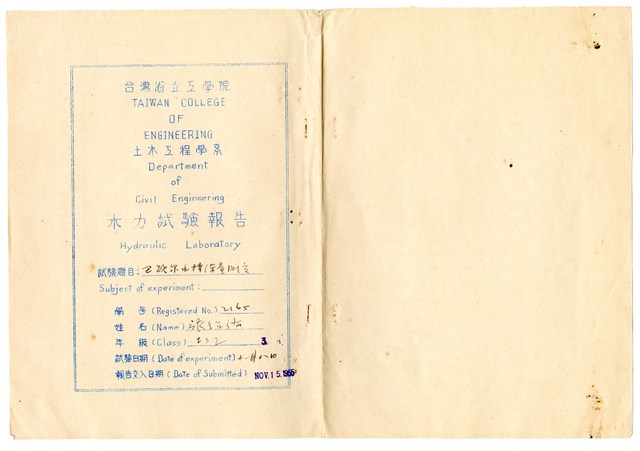 台灣省立工學院
TAIWAN COLLEGE
OF
ENGINEERING
土木工程學系
Department
of
Civil Engineering
水力試驗報告
Hydraulic Laboratory
試驗題目:
Subject of experiment:
學号 (Registered No.) 2165
姓名 (Name)
年級 (Class) 土三乙 3.
試驗日期 (Date of experiment)
報告交入日期 (Date of Submitted) NOV. 15. 1955